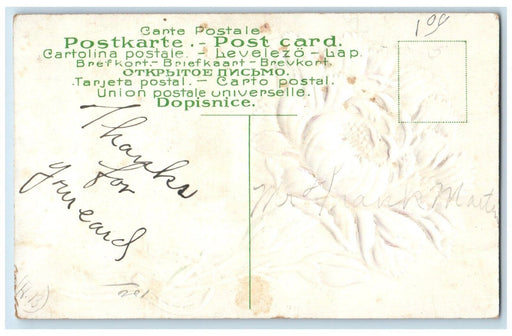 1 00
Carte Postale
Postkarte. - Post card.
Cartolina postale. - Levelező - Lap.
Brefkort.- Briefkaart - Brevkort.
ОТКРЫТОЕ ПИСЬМО.
Tarjeta postal. - Carto postal.
Union postale universelle.
Dopisnice.
Thanks
for
your card
Mr Frank Martin